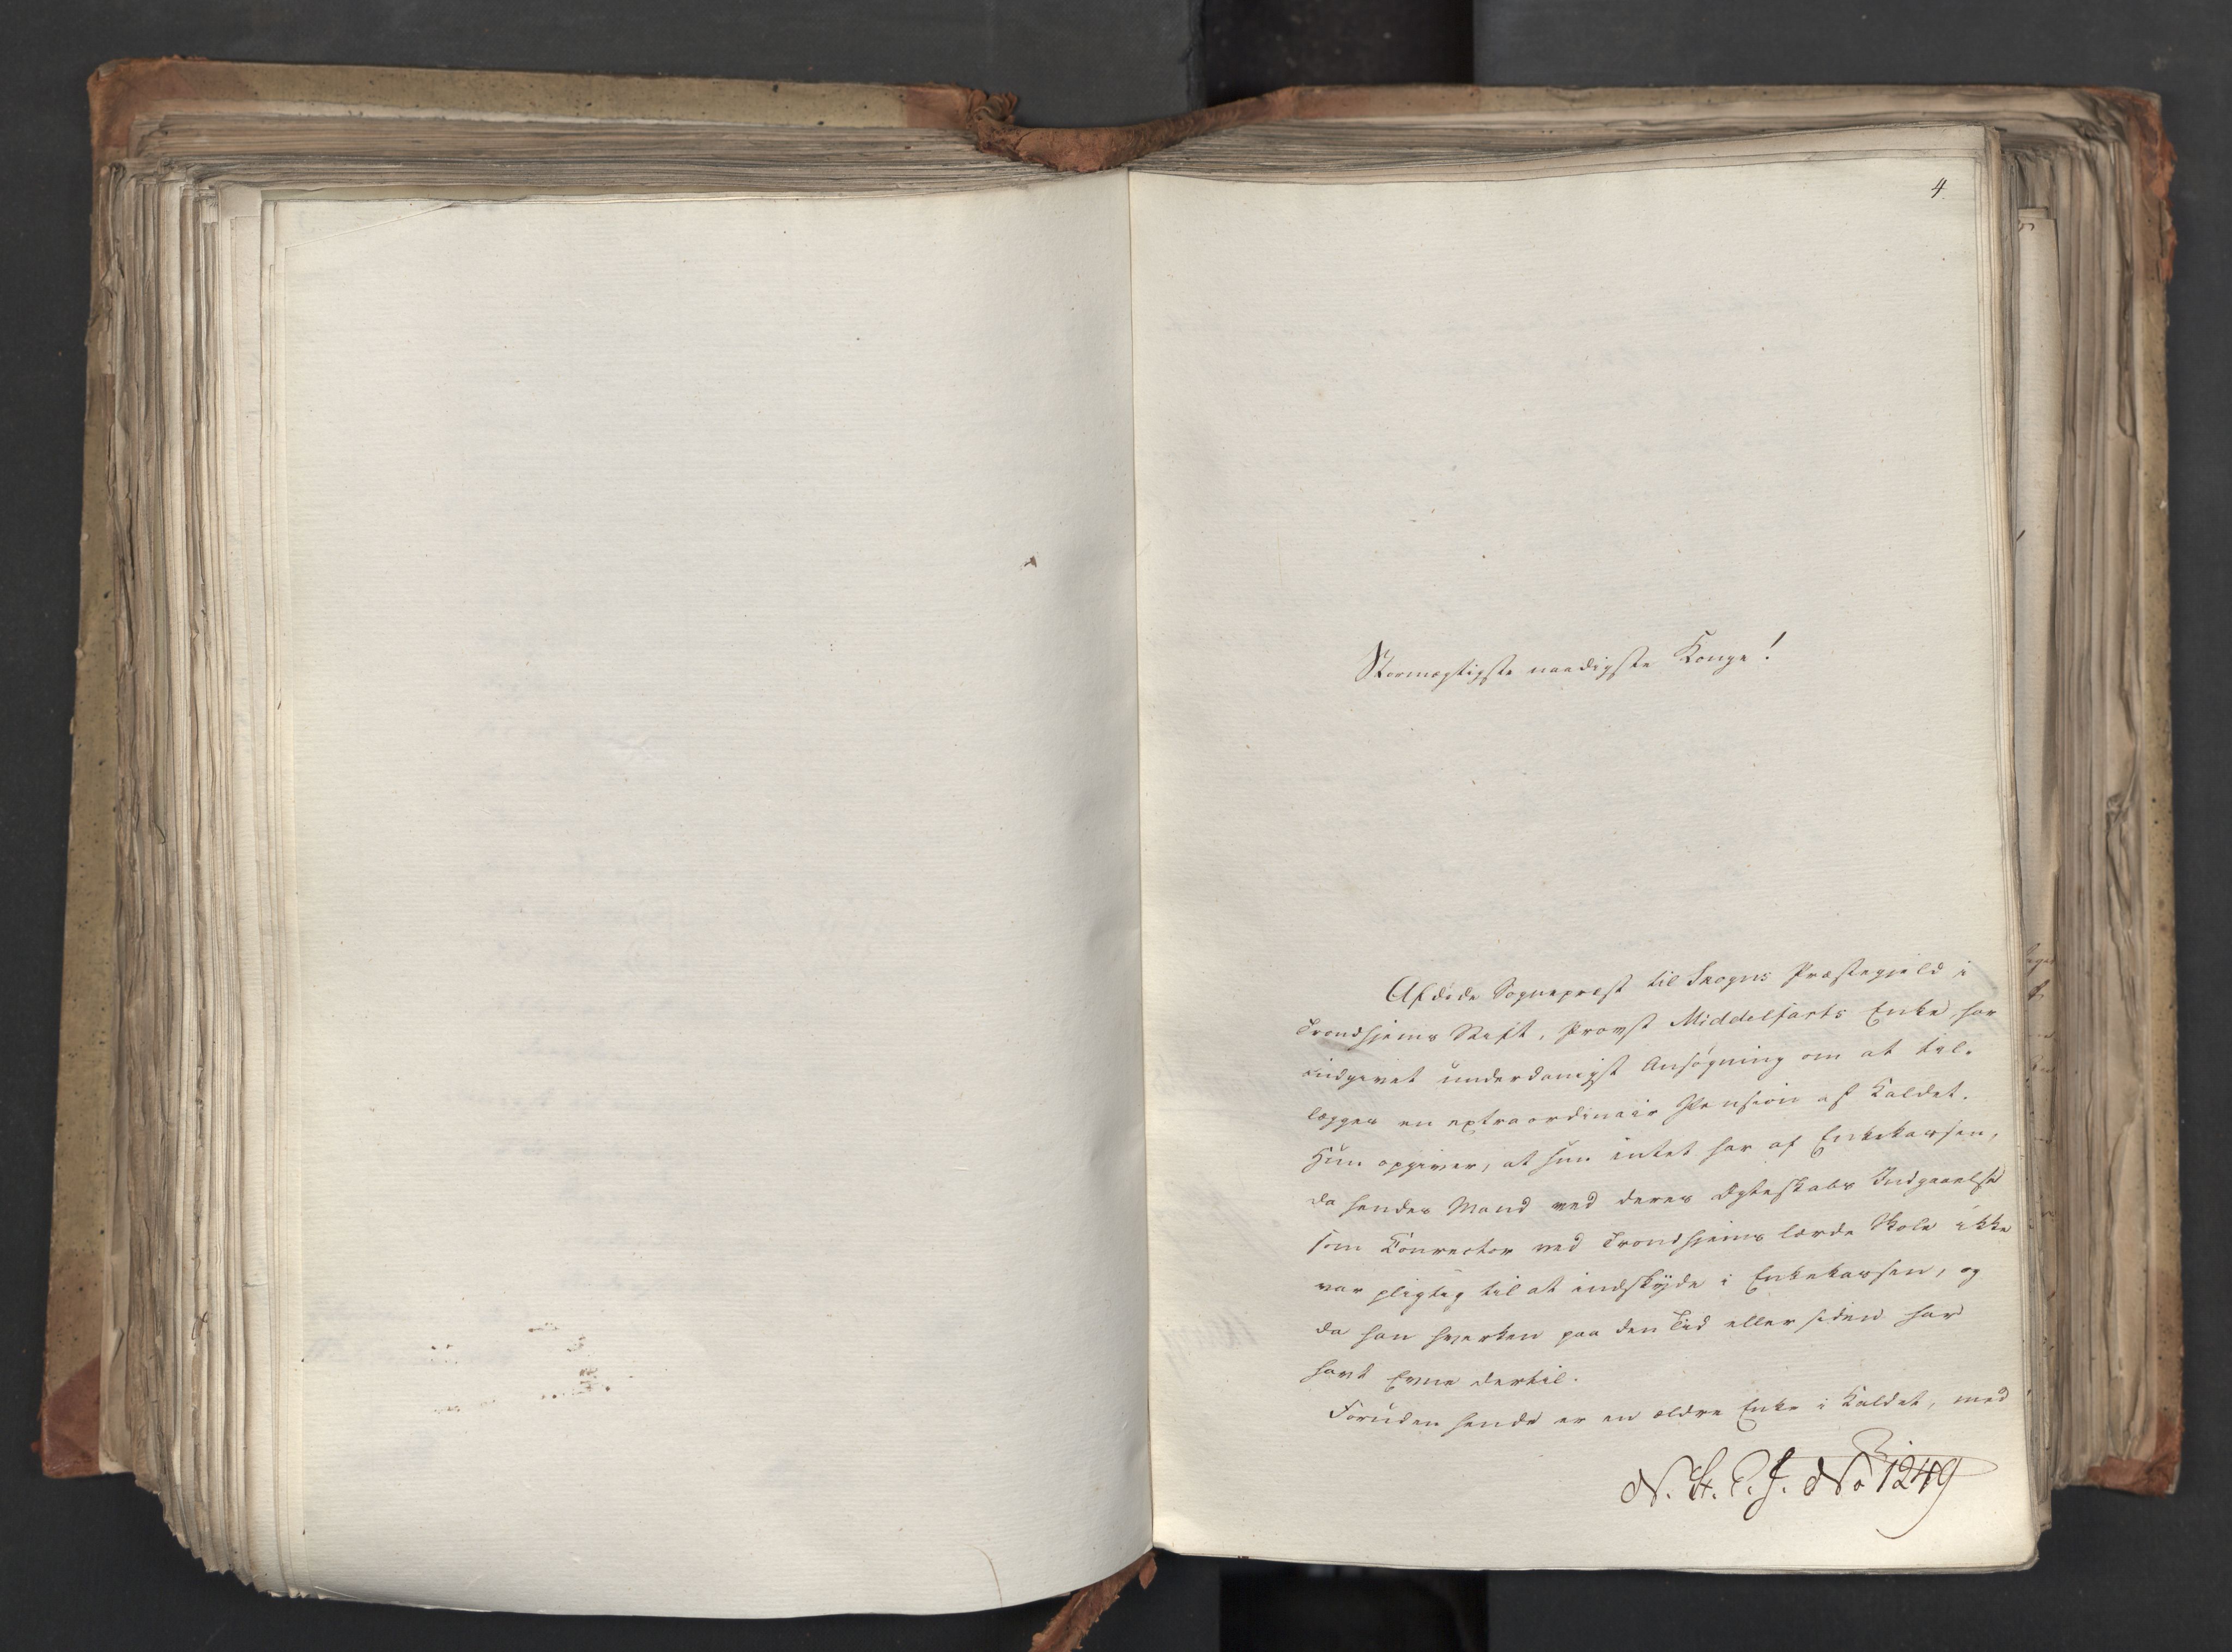 4.
Stormægtigste naadigste Konge!
Afdøde Sognepræst til Skogns Præstegjeld i
Trondhjems Stift, Provst Middelfarts Enke, har
indgivet underdanigst Ansøgning om at til-
lægges en extraordinair Pension af Kaldet.
Hun opgiver, at hun intet har af Enkekassen,
da hendes Mand ved deres Ægteskabs Indgaaelse
som Conrector ved Trondhjems lærde Skole ikke
var pligtig til at indskyde i Enkekassen, og
da han hverken paa den Tid eller siden har
havt Evne dertil.
Foruden hende er en ældre Enke i Kaldet, med
No 1249